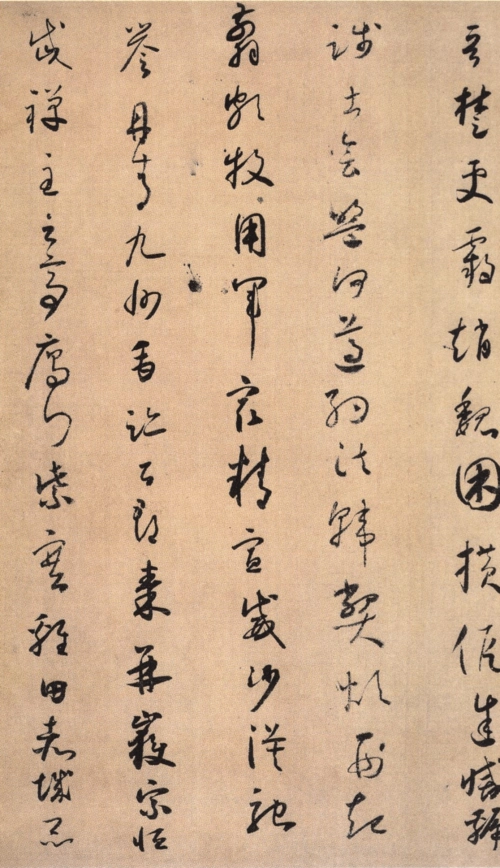 晉楚更霸趙魏困橫假途滅虢
踐土會盟何遵約法韓弊煩刑起
翦頗牧用軍最精宣威沙漠馳
譽丹青九州禹跡百郡秦并嶽宗恒
岱禪主云亭鴈門紫塞雞田赤城昆